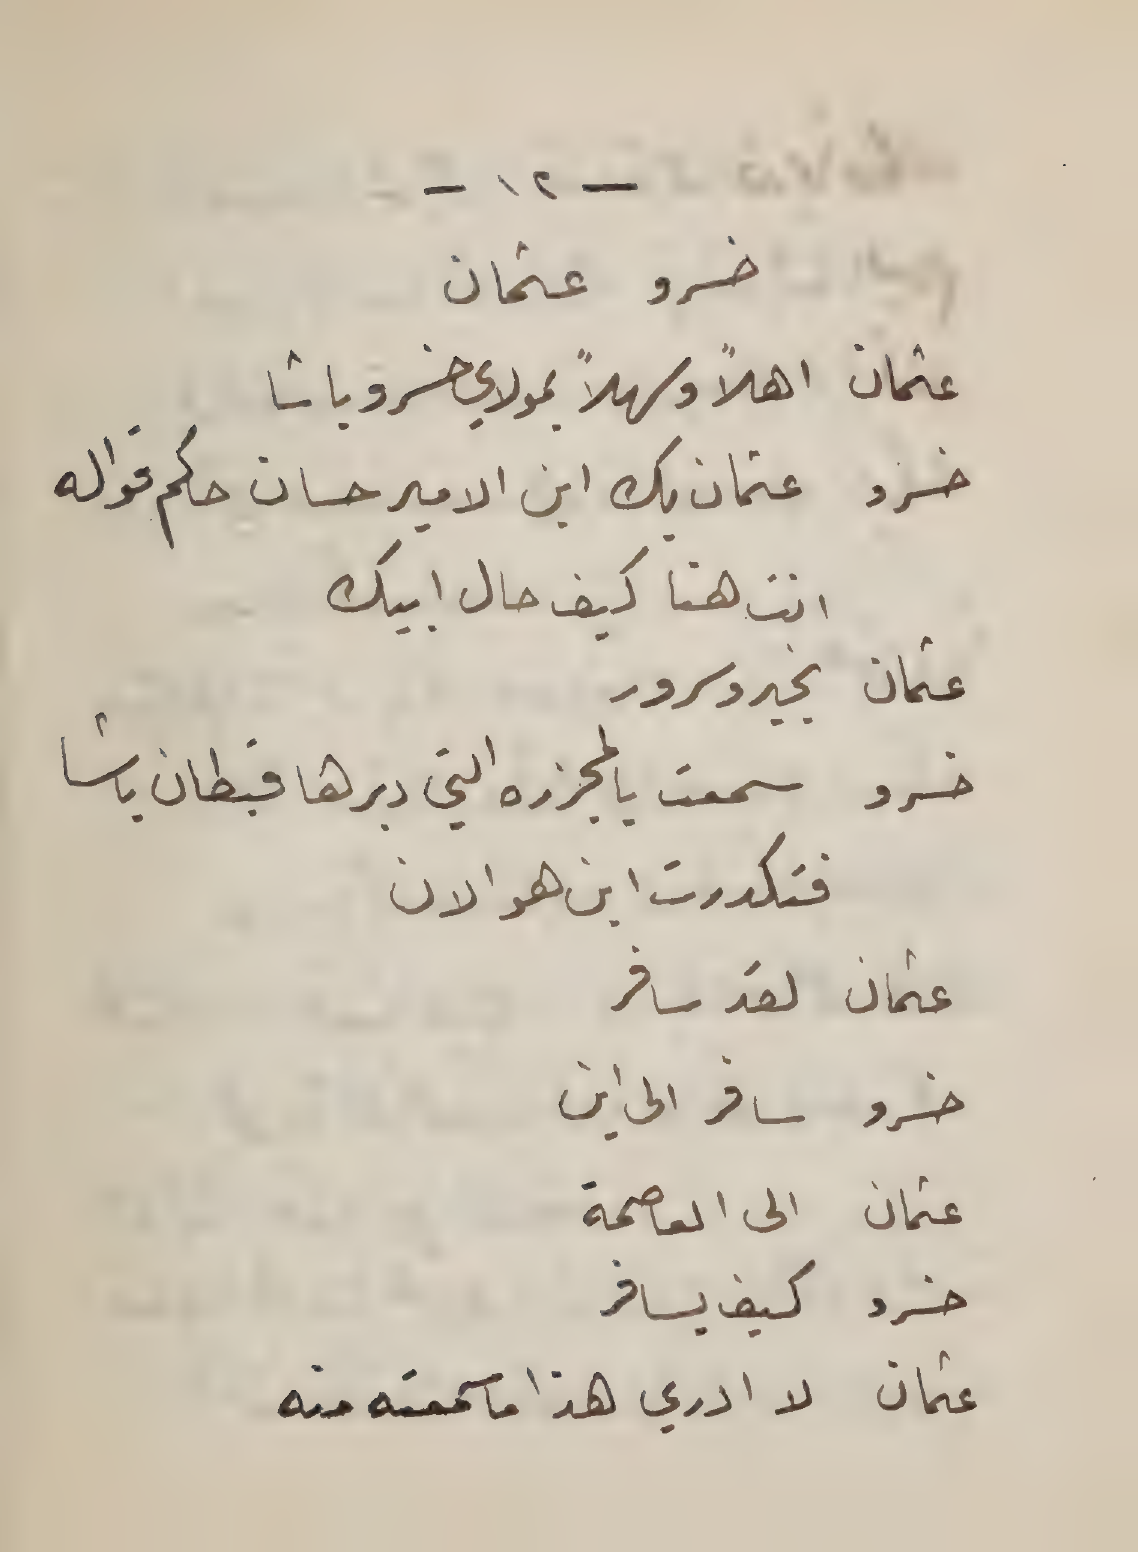 — ١٢ —
خسرو عثمان
عثمان اهلاً وسهلاً بمولاي خسرو باشا
خسرو عثمان بك ابن الامير حسان حاكم قواله
انت هنا كيف حال ابيك
عثمان بخير وسرور
خسرو سمعت بالمجزره التي دبرها قبطان باشا
فتكدرت اين هو الان
عثمان لقد سافر
خسرو سافر الى اين
عثمان الى العاصمة
خسرو كيف يسافر
عثمان لا ادري هذا ما سمعته منه